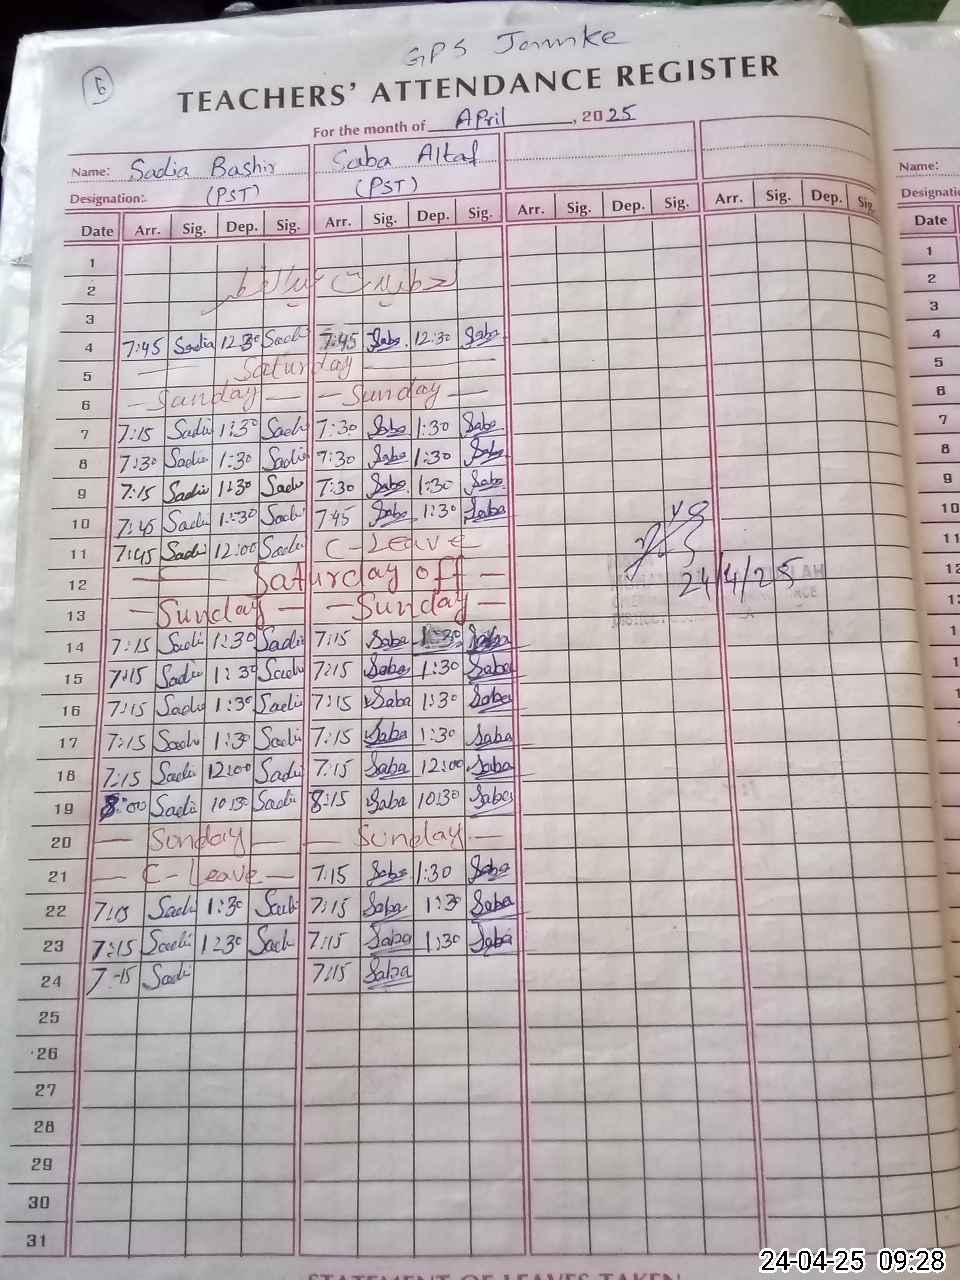 GPS
6
TEACHERS' ATTENDANCE REGISTER
For the month of April, 2025
Name: Sadia Bashir Saba Altaf Name:
Designation: (PST) (PST) Designati
Date Arr. Sig. Dep. Sig. Arr. Sig. Dep. Sig. Arr. Sig. Dep. Sig. Arr. Sig. Dep. Sig. Date
1 1
2 تعطیلات 2
3 3
4 7:45 Sadia 12:30 Sadi 7:45 Saba 12:30 Saba 4
5 Saturday 5
6 - Sunday - - Sunday - 6
7 7:15 Sadi 1:30 Sadi 7:30 Saba 1:30 Saba 7
8 7:30 Sadi 1:30 Sadi 7:30 Saba 1:30 Saba 8
9 7:15 Sadi 1:30 Sadi 7:30 Saba 1:30 Saba 9
10 7:45 Sadi 1:30 Sadi 7:45 Saba 1:30 Saba 10
11 7:45 Sadi 12:00 Sadi C-Leave 11
12 Saturday off - 12
13 - Sunday - - Sunday -
24/4/25
14 7:15 Sadi 1:30 Sadi 7:15 Saba 1:30 Saba
15 7:15 Sadi 1:30 Sadi 7:15 Saba 1:30 Saba
16 7:15 Sadi 1:30 Sadi 7:15 Saba 1:30 Saba
17 7:15 Sadi 1:30 Sadi 7:15 Saba 1:30 Saba
18 7:15 Sadi 12:00 Sadi 7:15 Saba 12:00 Saba
19 8:00 Sadi 10:30 Sadi 8:15 Saba 10:30 Saba
20 - Sunday - - Sunday -
21 - C-Leave - 7:15 Saba 1:30 Saba
22 7:15 Sadi 1:30 Sadi 7:15 Saba 1:30 Saba
23 7:15 Sadi 1:30 Sadi 7:15 Saba 1:30 Saba
24 7:15 Sadi 7:15 Saba
25
26
27
28
29
30
31
STATEMENT OF LEAVES TAKEN
24-04-25 09:28